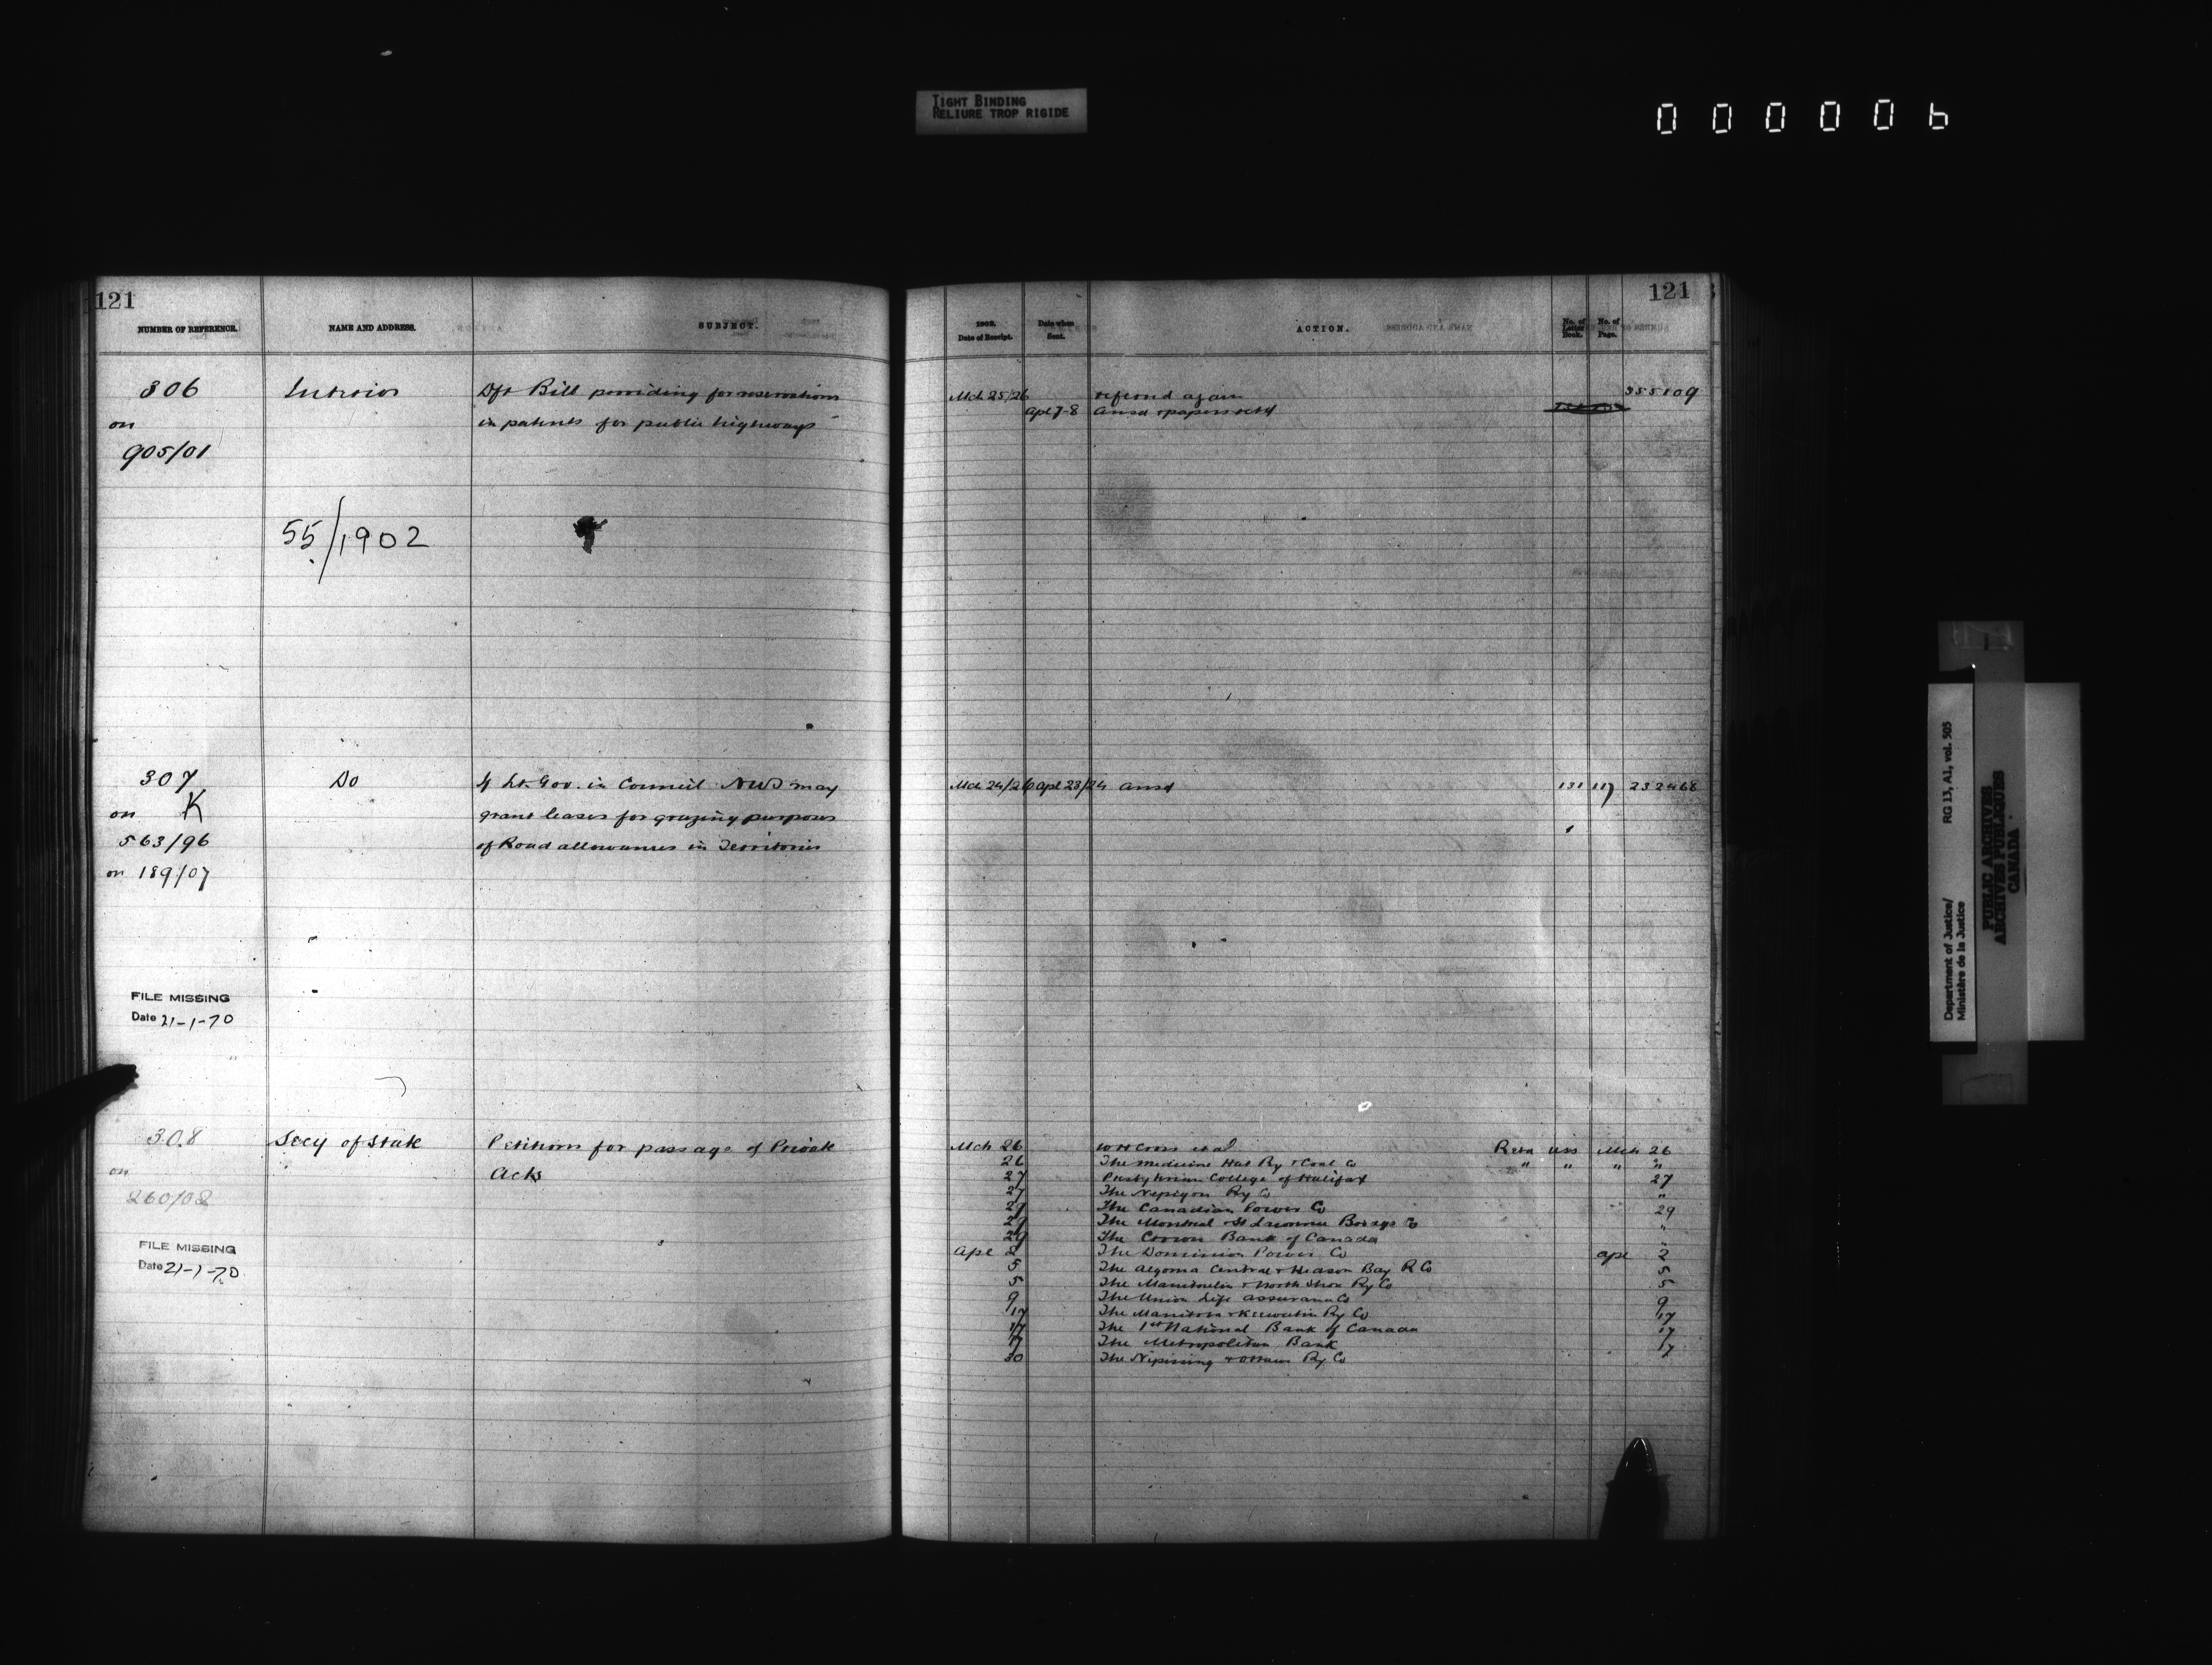 TIGHT BINDING
RELIURE TROP RIGIDE
000006
121
NUMBER OF REFERENCE.
NAME AND ADDRESS.
SUBJECT.
306
on
905/01
Interior
Dft Bill providing for reservations
in patents for public highways
55/1902
307
K
on
563/96
on 189/07
Do
If Lt. Gov. in Council NWT may
grant leases for grazing purposes
of Road allowances in Territories
FILE MISSING
Date 21-1-70
308
on
260/02
Secy of State
Petitions for passage of Private
Acts
FILE MISSING
Date 21-1-70
121
1902.
Date of Receipt.
Date when
Sent.
ACTION.
No. of
Letter
Book.
No. of
Page.
Mch 25/26 referred again 355109
Apl 7-8 Ansd & papers retd
Mch 24/26 Apl 23/24 Ansd 131 117 232468
Mch 26 W H Cross et al Mch 26
26 The Medicine Hat Ry & Coal Co " " " "
27 Presbyterian College of Halifax 27
27 The Nepigon Ry Co "
29 The Canadian Power Co 29
29 The Montreal & St Lawrence Co "
29 The Crown Bank of Canada "
Apl 2 The Dominion Power Co Apl 2
5 The Algoma Central & Hudson Bay R Co 5
5 The Manitoulin & North Shore Ry Co 5
9 The Union Life Assurance Co 9
17 The Manitoba & Keewatin Ry Co 17
17 The 1st National Bank of Canada 17
17 The Metropolitan Bank 17
30 The Nipissing & Ottawa Ry Co
Department of Justice/ RG 13, A1, vol. 505
Ministère de la Justice
PUBLIC ARCHIVES
ARCHIVES PUBLIQUES
CANADA